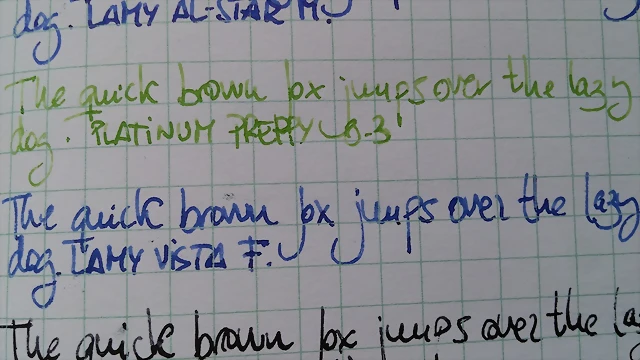 dog. LAMY AL-STAR M.
The quick brown fox jumps over the lazy
dog. PLATINUM PREPPY 0-3
The quick brown fox jumps over the lazy
dog. LAMY VISTA F.
The quick brown fox jumps over the la